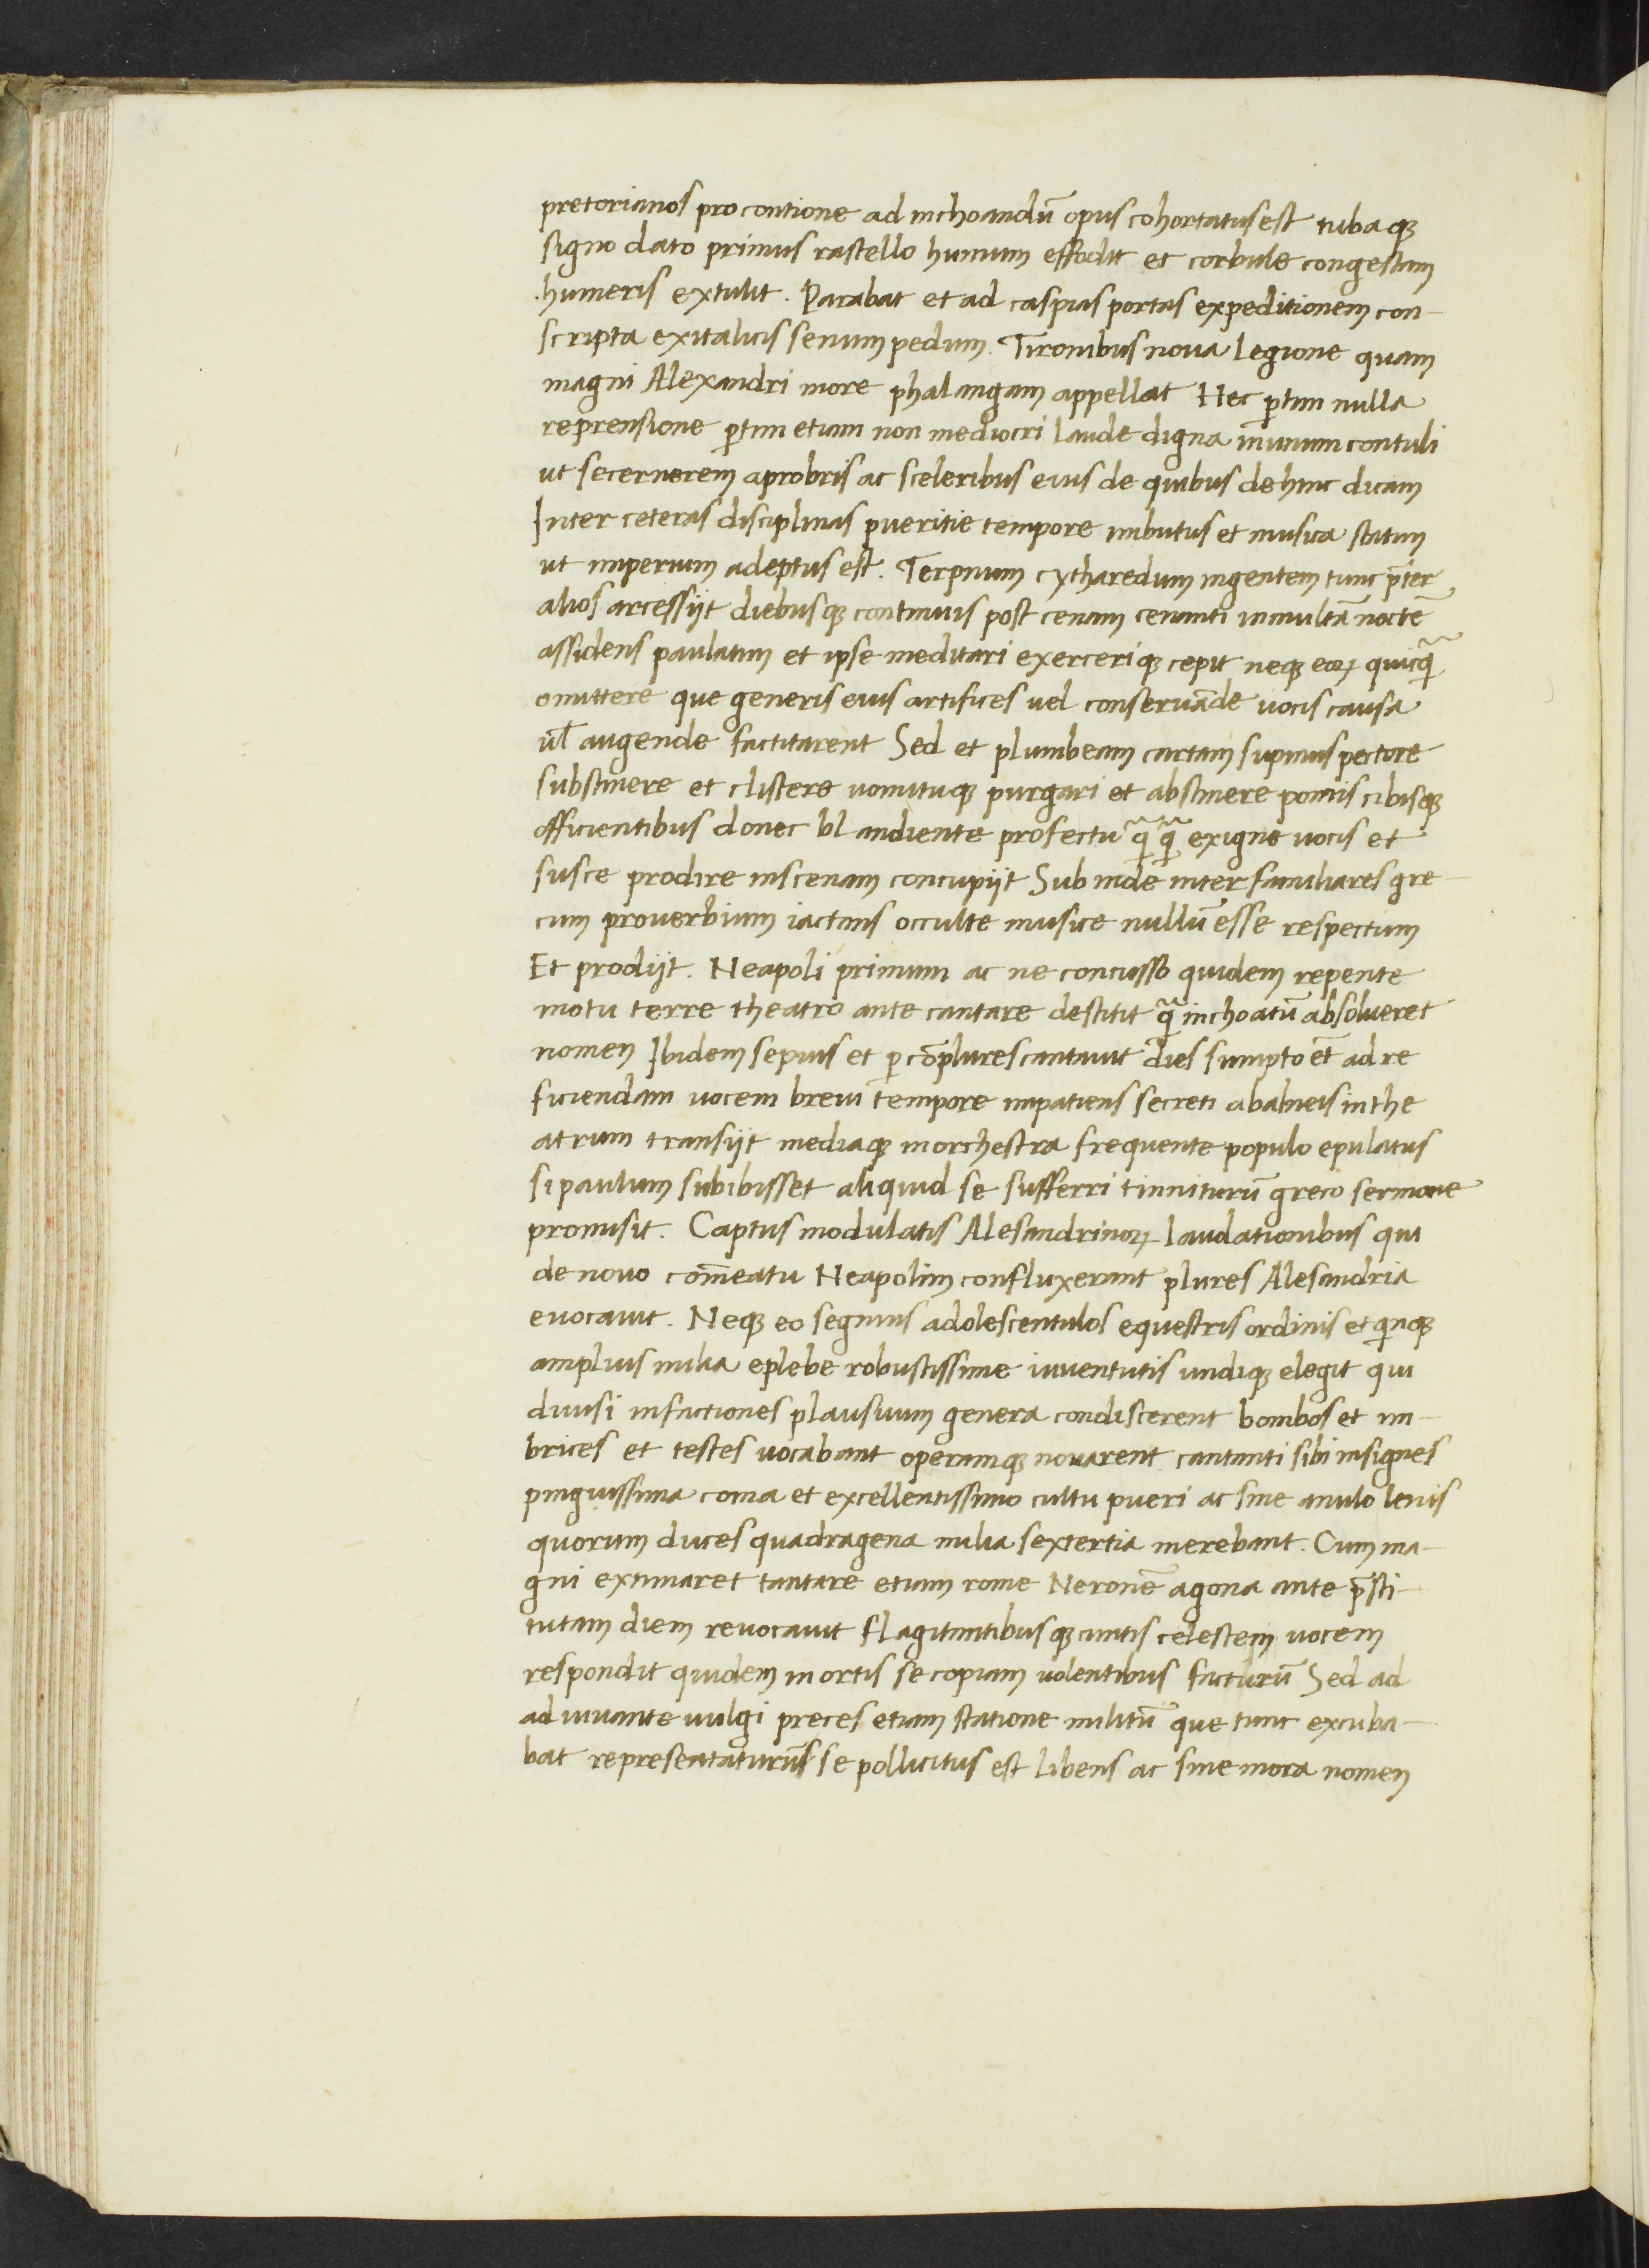 pretorianos pro contione ad inchoandū opus cohortatus est tubaqꝫ
signo dato primus rastello humum effodit et corbule congestam
humeris extulit. Parabat et ad caspias portas expeditionem con-
scripta ex italicis senum pedum. Tironibus noua legione quam
magni Alexandri more phalangam appellat Hec ꝑtim nulla
reprensione ꝑtim etiam non mediocri laude digna in unum contuli
ut secernerem a probris ac sceleribus eius de quibus dehinc dicam
Inter ceteras disciplinas pueritie tempore imbutus et musica statim
ut imperium adeptus est. Terpnum cytharedum ingentem tunc p̄ter
alios arcessijt diebusqꝫ continuis post cenam cenanti in multā noctē
assidens paulatim et ipse meditari exerceriqꝫ cepit neqꝫ eoꝝ quicq̄
omittere que generis eius artifices uel conseruāde uocis causa
ul̄ augende factitarent Sed et plumbeam cartam supinus pectore
substinere et clistere uomituqꝫ purgari et abstinere pomis cibisqꝫ
officientibus donec blandiente profectu q̄q̄ exigne uocis et
susce prodire in scenam concupijt Sub inde inter familiares gre-
cum prouerbium iactans occulte musice nullū esse respectum
Et prodijt. Neapoli primum ac ne concusso quidem repente
motu terre theatro ante cantare destitit q̄ inchoatū absolueret
nomen Ibidem sepius et ꝑ cōplures cantauit dies sumpto et̄ ad re
ficiendam uocem breui tempore impatiens secreti a balneis in the
atrum transijt mediaqꝫ in orchestra frequente populo epulatus
si paulum subibisset aliquid se sufferri tinniturū greco sermone
promisit. Captus modulatis Alesandrinoꝝ laudationibus qui
de nouo com̄eatu Neapolim confluxerant plures Alesandria
euocauit. Neqꝫ eo segnius adolescentulos equestris ordinis et qi̅nqꝫ
amplius milia e plebe robustissime iuuentutis undiqꝫ elegit qui
diuisi in factiones plausuum genera condiscerent bombos et im-
brices et testes uocabant operamqꝫ nouarent cantanti sibi insignes
pinguissima coma et excellentissimo cultu pueri ac sine anulo leuis
quorum duces quadragena milia sextertia merebant. Cum ma-
gni extimaret tantare etiam rome Neronē agona ante p̄sti-
tutam diem reuocauit flagitantibusqꝫ cuntis celestem uocem
respondit quidem in ortis se copiam uolentibus facturū Sed ad
adiuuante uulgi preces etiam statione militū que tunc excuba-
bat representaturūs se pollicitus est libens ac sine mora nomen